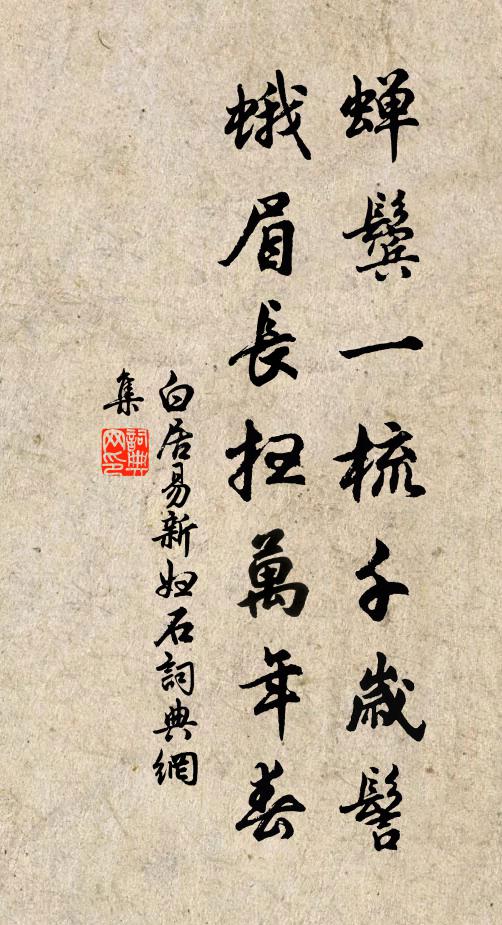 蝉鬢一梳千歲髻
蛾眉長扫萬年春
白居易新婦石詞典網
集
詞典网印